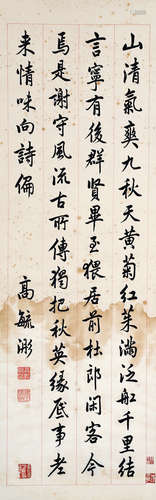 山清氣爽九秋天黃菊紅茱滿泛船千里結
言寧有後群賢畢至猥居前杜郎閑客今
焉是謝守風流古所傳獨把秋英緣底事老
來情味向詩偏
高毓浵